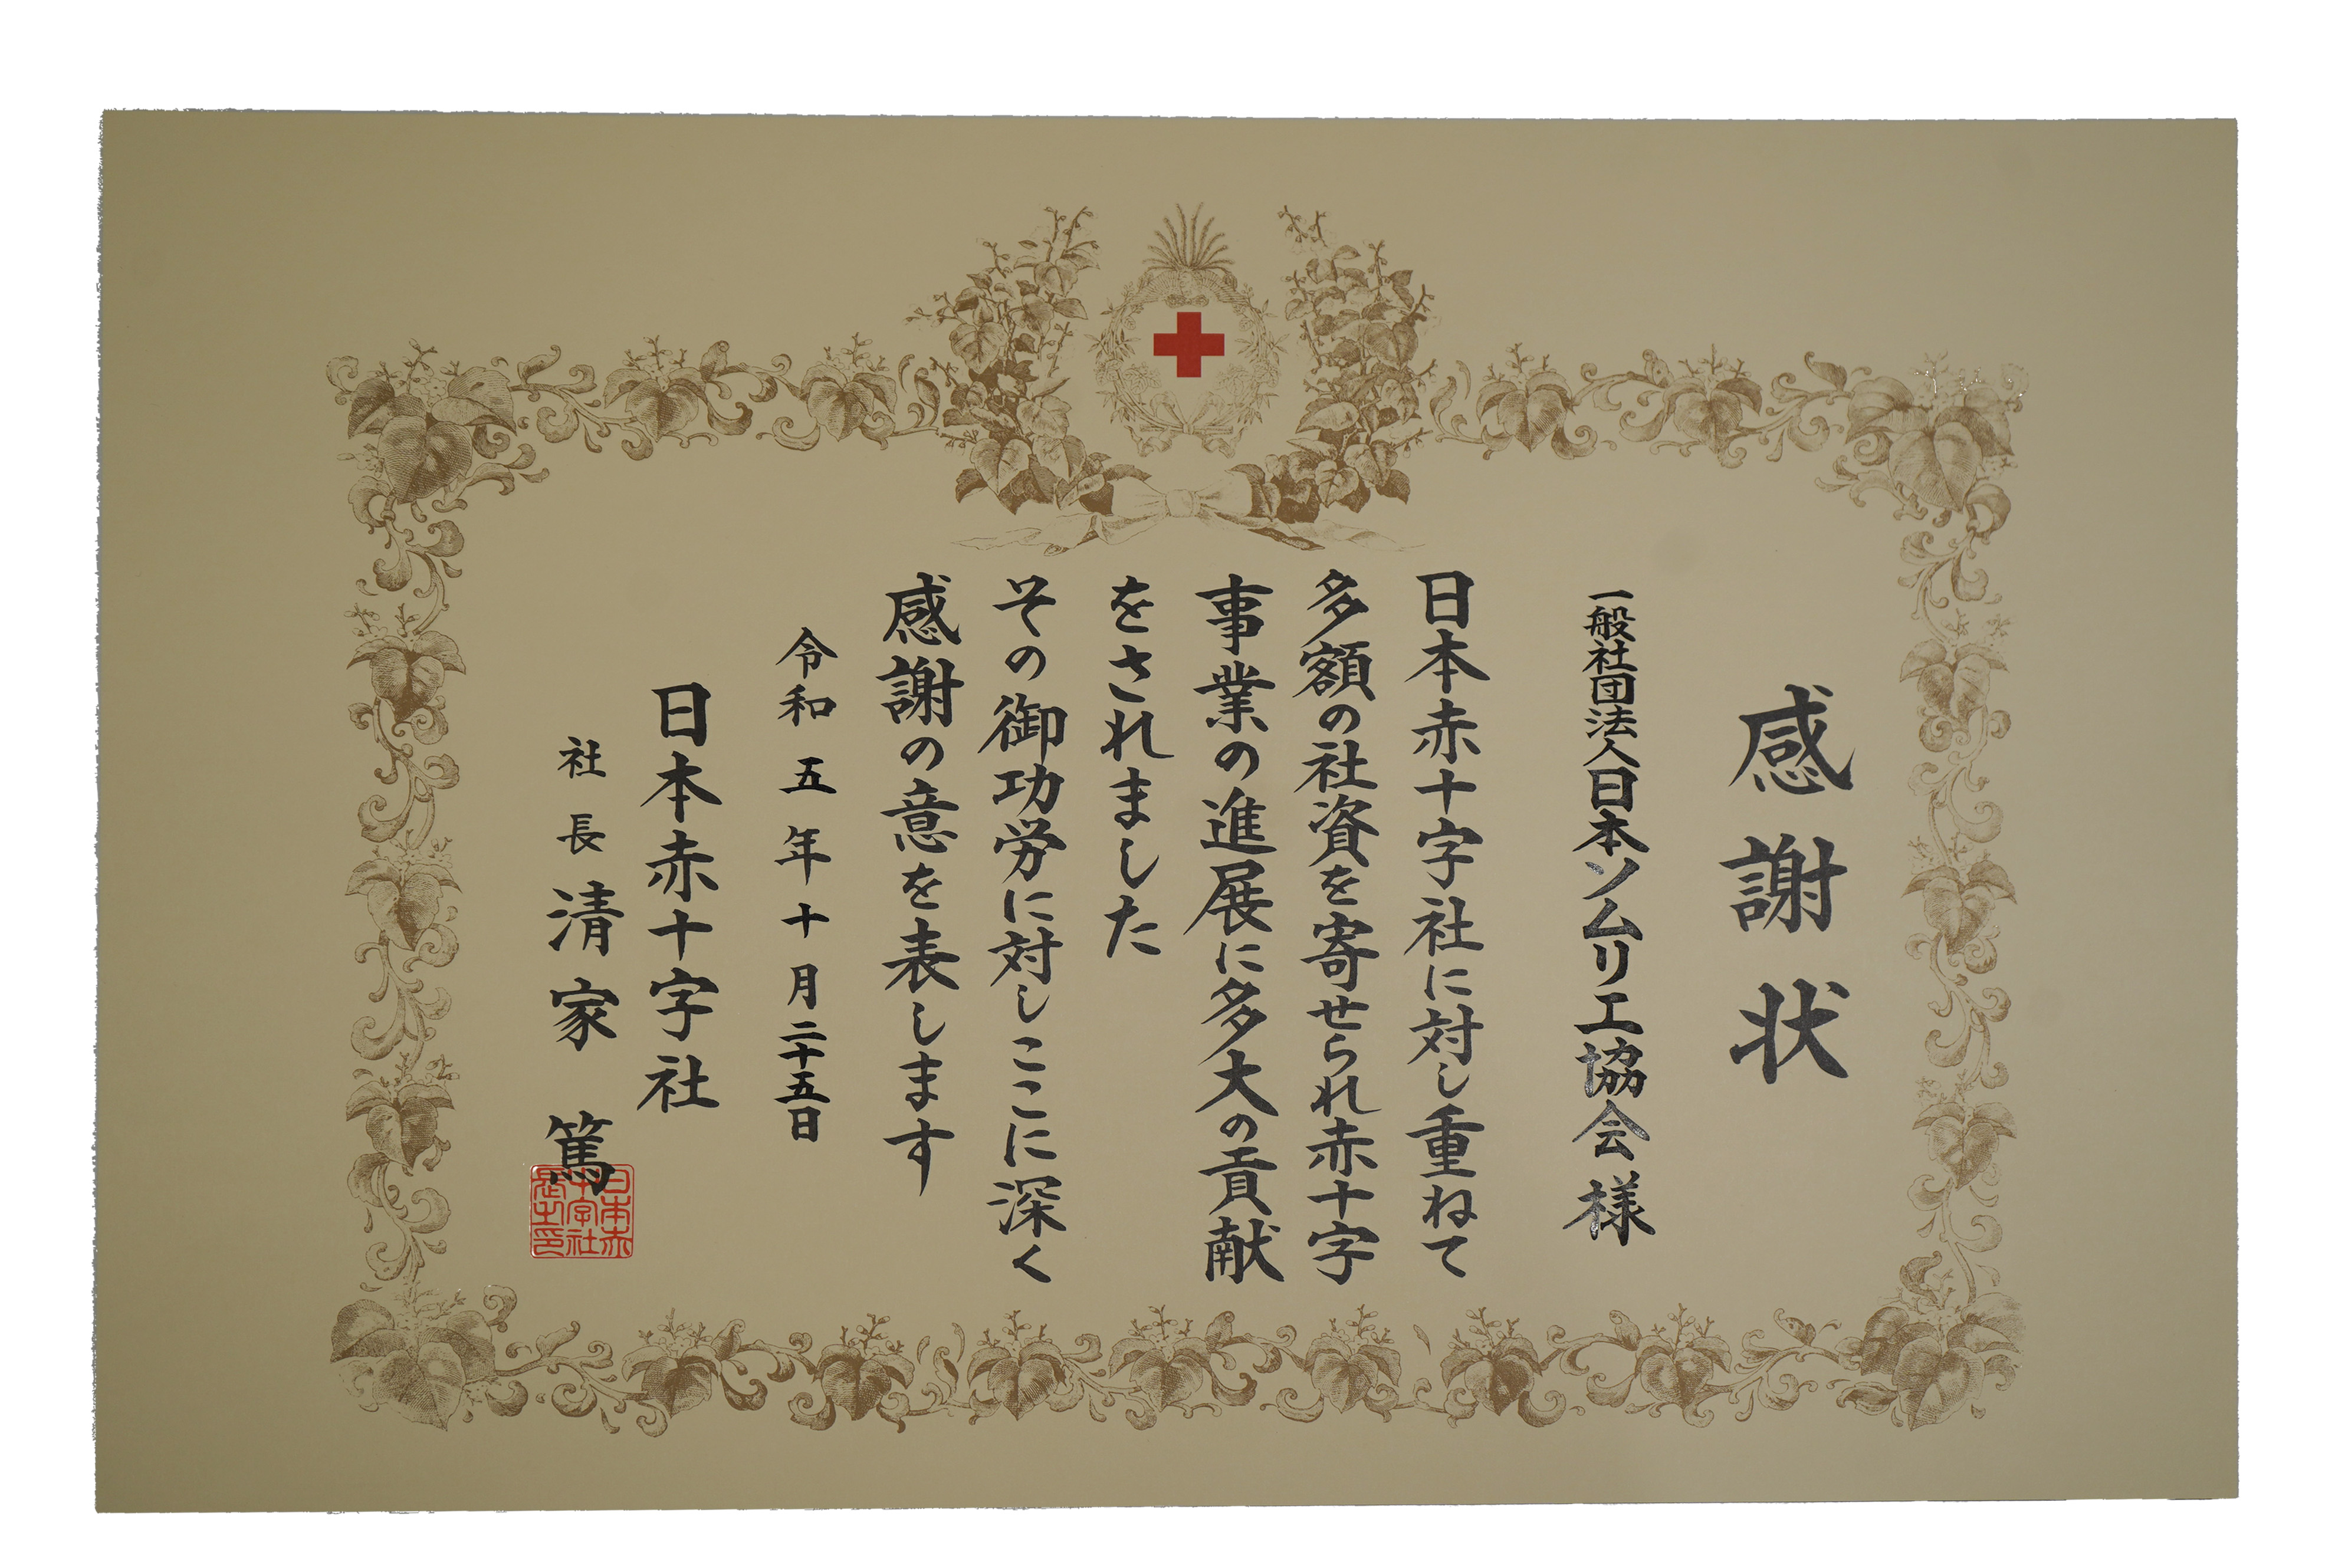 感謝状
一般社団法人日本ソムリエ協会様
日本赤十字社に対し重ねて
多額の社資を寄せられ赤十字
事業の進展に多大の貢献
をされました
その御功労に対しここに深く
感謝の意を表します
令和五年十月二十五日
日本赤十字社
社長清家篤
日本赤十字社長之印